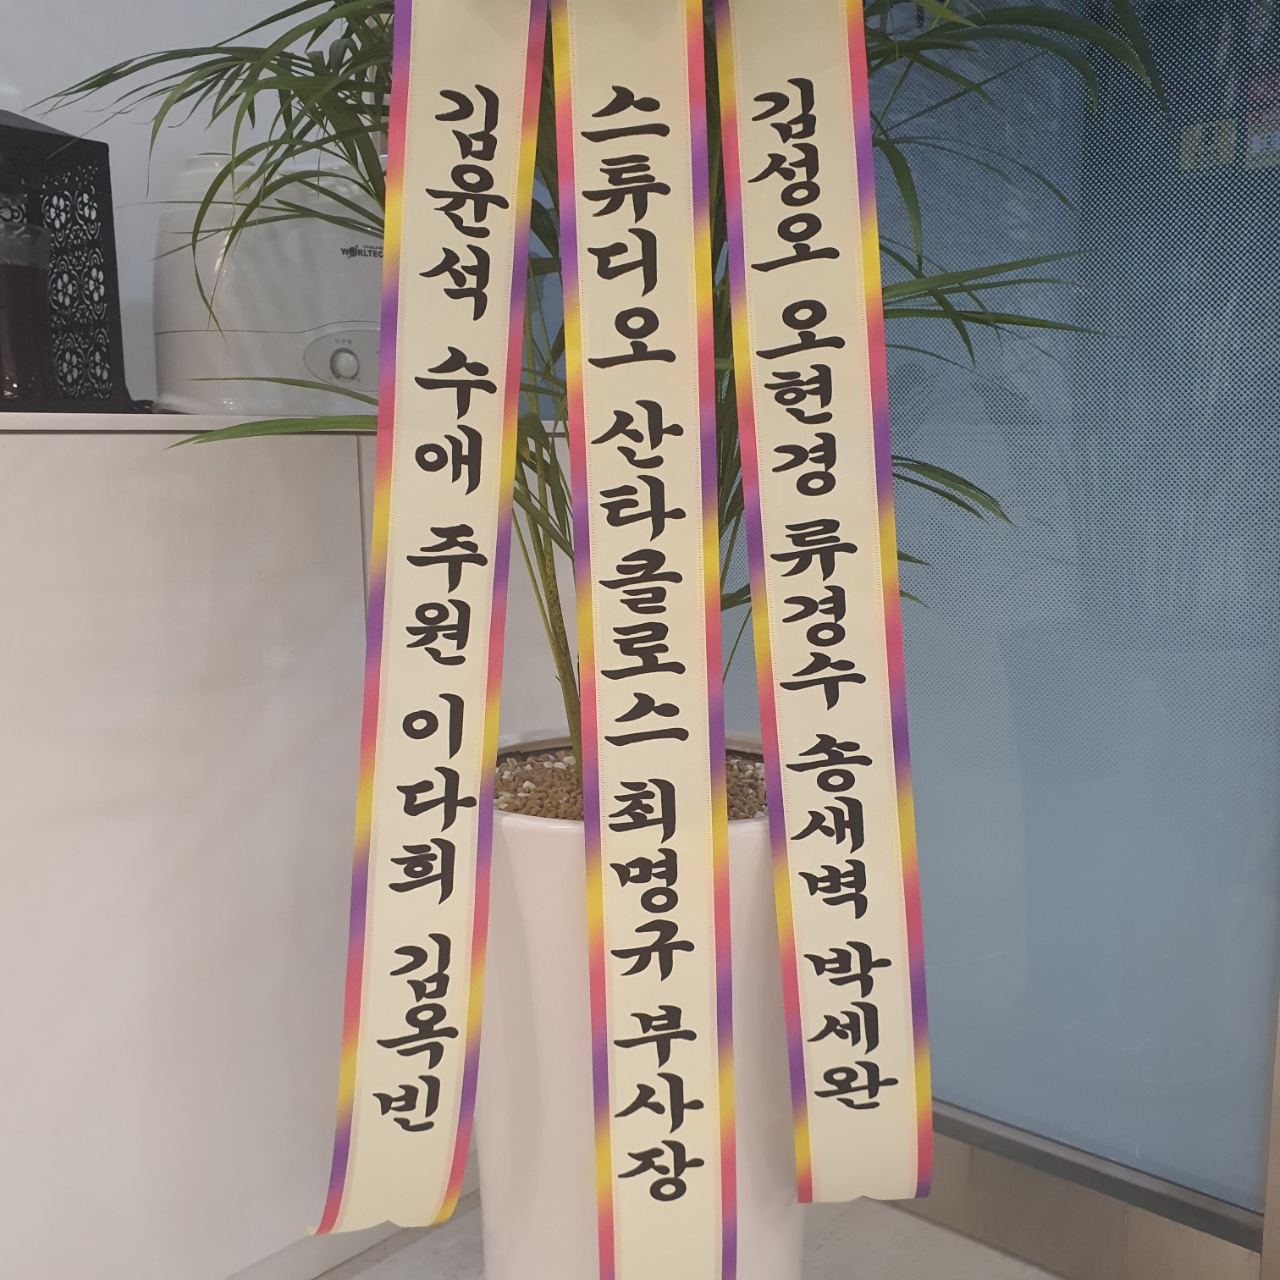 김윤석 수애 주원 이다희 김옥빈
스튜디오 산타클로스 최명규 부사장
김성오 오현경 류경수 송새벽 박세완